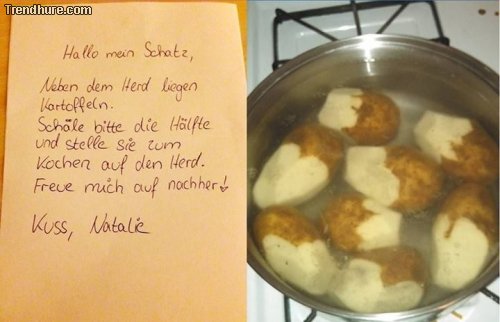 Trendhure.com
Hallo mein Schatz,
Neben dem Herd liegen
Kartoffeln.
Schäle bitte die Hälfte
und stelle sie zum
Kochen auf den Herd.
Freue mich auf nachher!
Kuss, Natalie